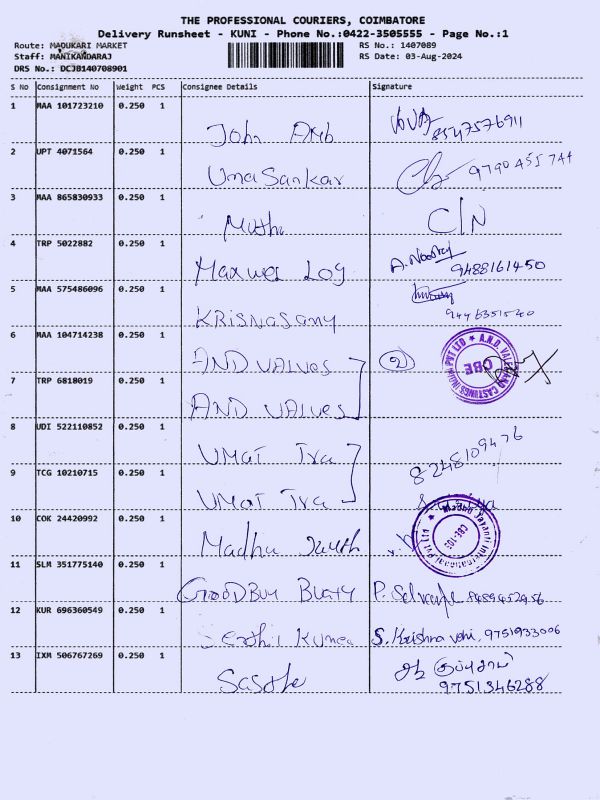 THE PROFESSIONAL COURIERS, COIMBATORE
Delivery Runsheet - KUNI - Phone No.:0422-3505555 - Page No.:1
Route: MADUKARI MARKET
RS No.: 1407089
Staff: MANIKANDARAJ
RS Date: 03-Aug-2024
DRS No.: DCJB140708901
S No Consignment No Weight PCS Consignee Details Signature
1 MAA 101723210 0.250 1
John 8547576911
2 UPT 4071564 0.250 1
UmaSankar 9790455744
3 MAA 865830933 0.250 1
Muthu C/N
4 TRP 5022882 0.250 1
Maxwel Log A. 9488161450
5 MAA 575486096 0.250 1
KRISNASAMY 9446351520
6 MAA 104714238 0.250 1
AND VALVES 2
A.N.D. VALVES AND CASTINGS INDIA PVT LTD ★ CBE
7 TRP 6818019 0.250 1
AND VALVES
8 UDI 522110852 0.250 1
UMAT Tra 8248109476
9 TCG 10210715 0.250 1
UMAT Tra
10 COK 24420992 0.250 1
Madhu Jayanti International Pvt Ltd ★ CBE-103
Madhu
11 SLM 351775140 0.250 1
GOODBUY P. 9489452956
12 KUR 696360549 0.250 1
Senthil Kumar S. Krishna veni, 9751933006
13 IXM 506767269 0.250 1
9751346288